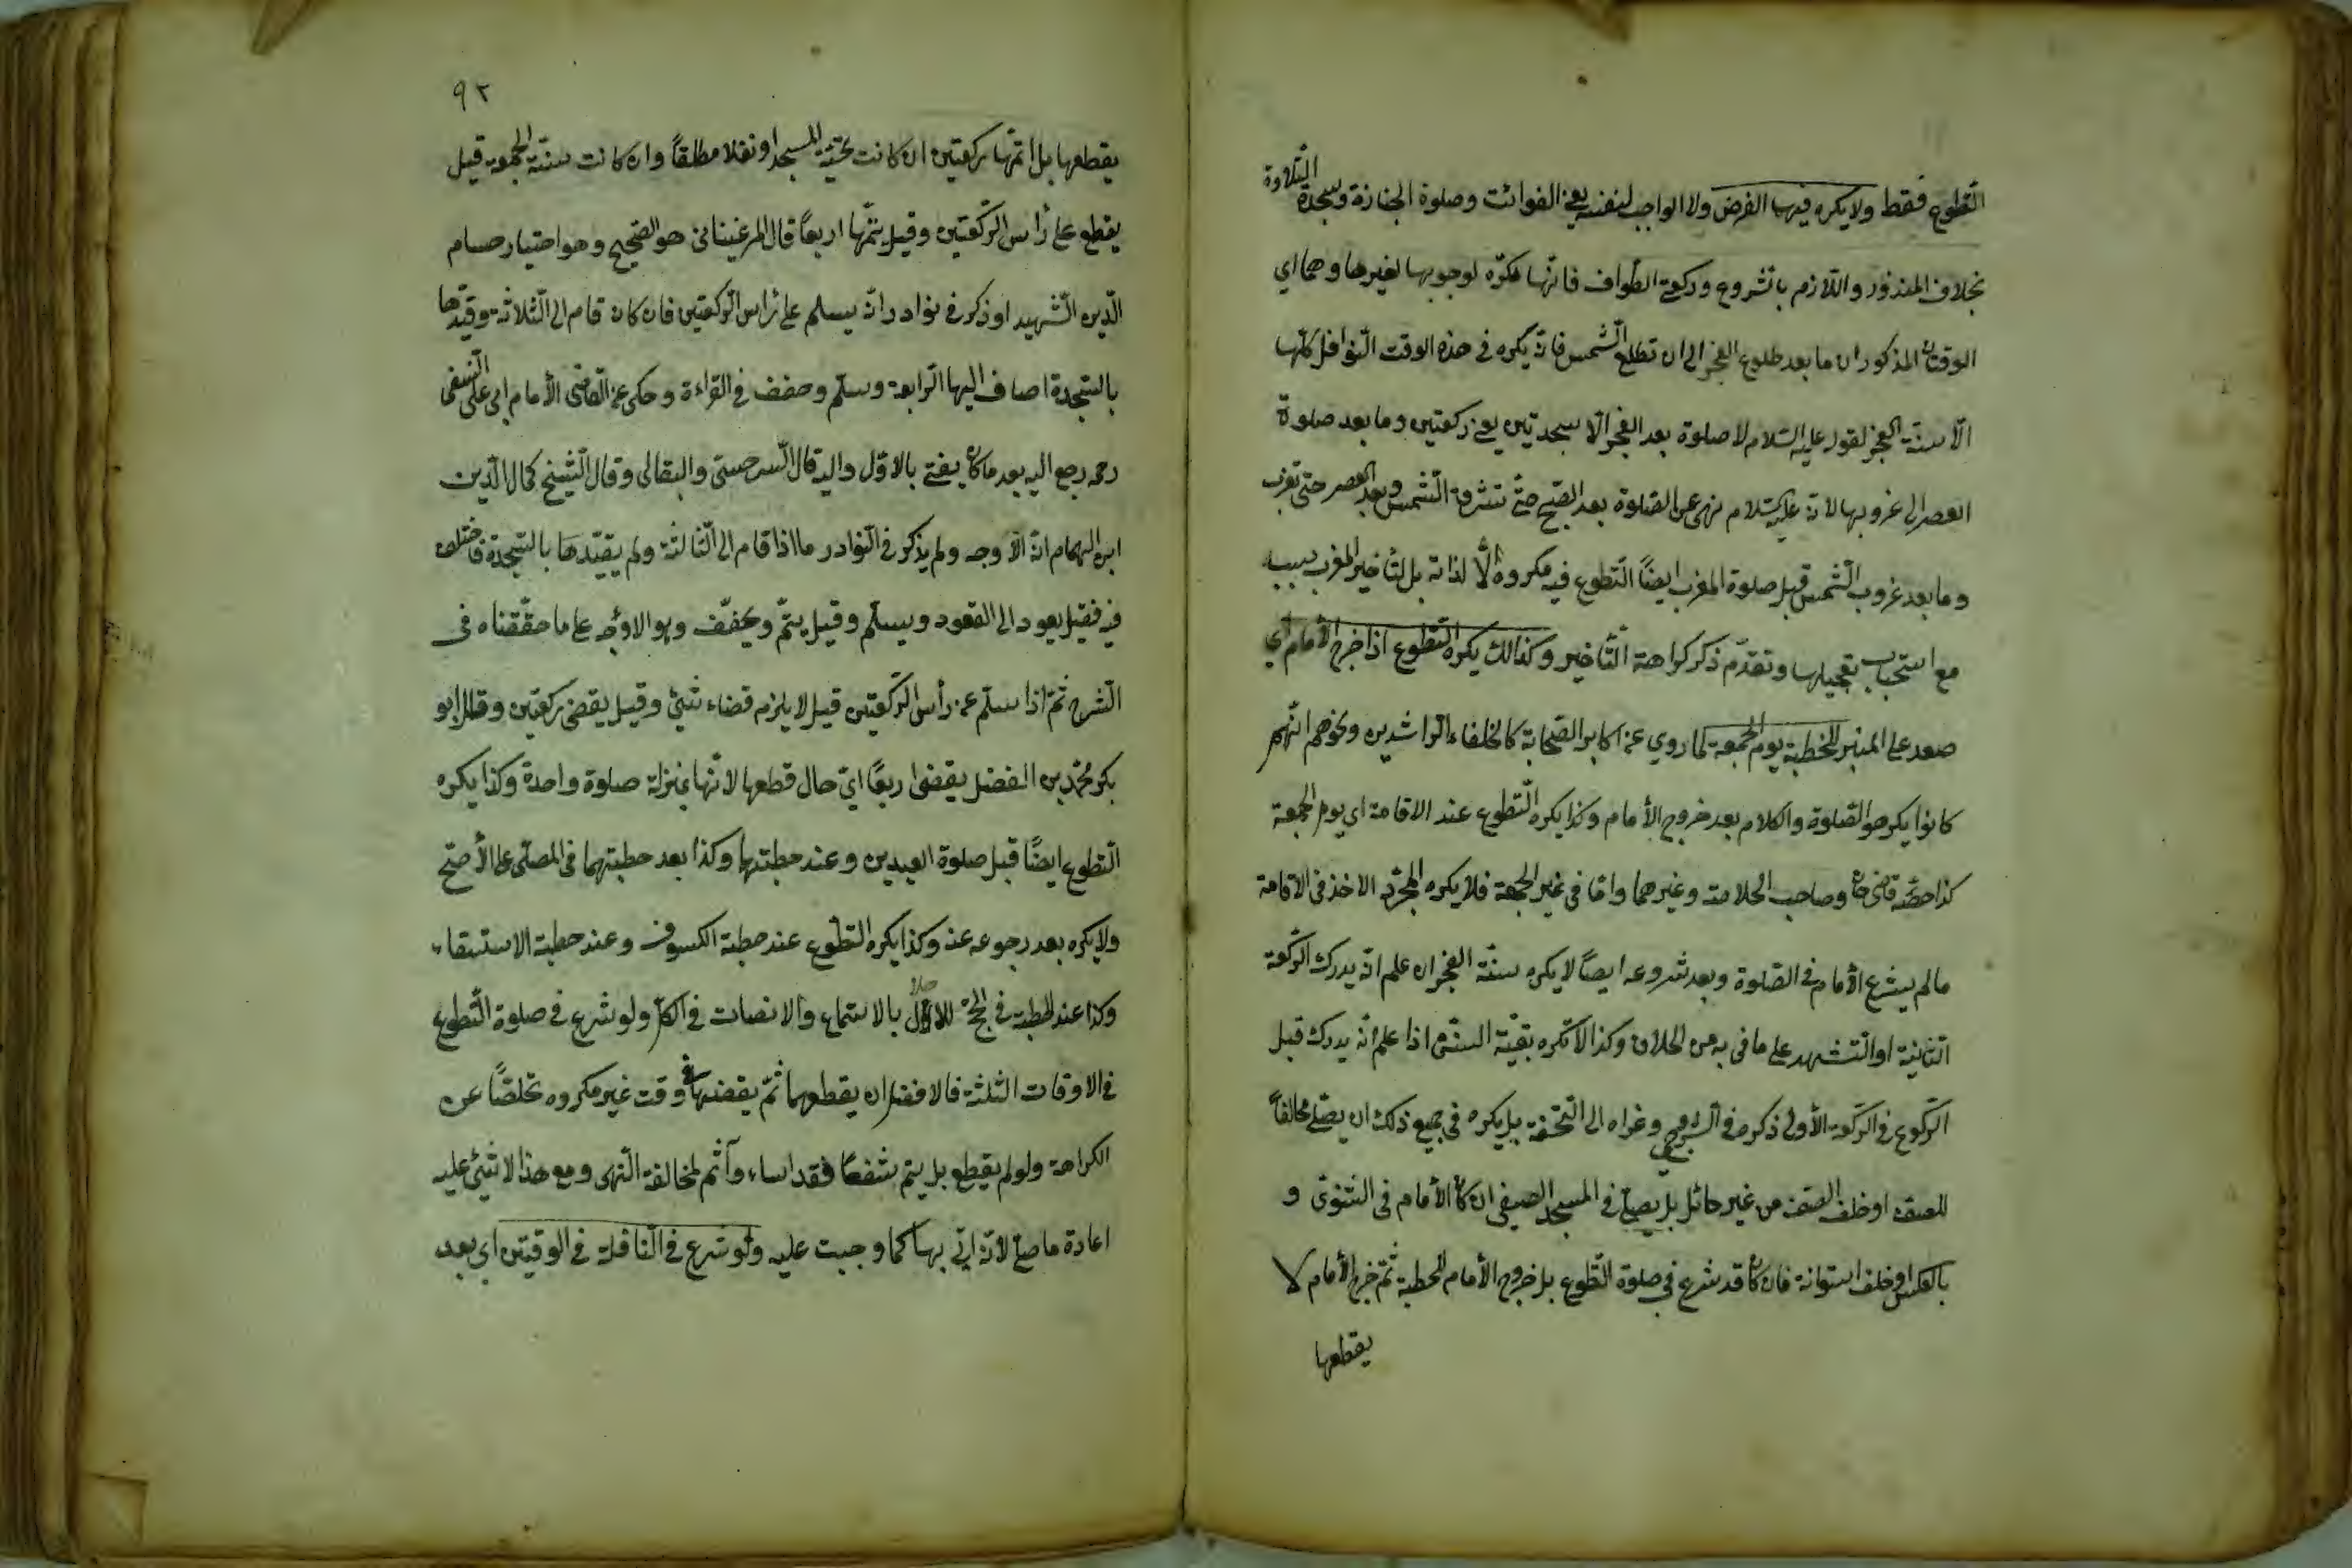 التطوع فقط ولا يكره فيها الفرض ولا الواجب لنفسه يعني الفوائت وصلوة الجنازة وسجدة التلاوة
بخلاف المنذور واللازم بالشروع وركعتي الطواف فانها تكره لوجوبها لغيرها وهما اي
الوقتان المذكوران ما بعد طلوع الفجر الى ان تطلع الشمس فانه يكره في هذه الوقت النوافل كلها
الا سنة الفجر لقوله عليه السلام لا صلوة بعد الفجر الا سجدتين يعني ركعتين وما بعد صلوة
العصر الى غروبها لانه عليه السلام نهى عن الصلوة بعد الصبح حتى تشرق الشمس وبعد العصر حتى تغرب
وما بعد غروب الشمس قبل صلوة المغرب ايضًا التطوع فيه مكروه لا لذاته بل لتأخير المغرب بسببه
مع استحباب تعجيلها وتقدم ذكر كراهة التأخير وكذالك يكره التطوع اذا خرج الأمام أي
صعد على المنبر للخطبة يوم الجمعة لما روي عن اكابر الصحابة كالخلفاء الراشدين ونحوهم انهم
كانوا يكرهو الصلوة والكلام بعد خروج الأمام وكذا يكره التطوع عند الاقامة اي يوم الجمعة
كذا خصه قاضي خان وصاحب الخلاصة وغيرهما واما في غير الجمعة فلا يكره لمجرد الاخذ في الاقامة
مالم يشرع الأمام في الصلوة وبعد شروعه ايضًا لا يكره سنة الفجر ان علم انه يدرك الركعة
الثانية او التشهد على ما في به من الخلاف وكذا لا تكره بقية السنن اذا علم انه يدرك قبل
الركوع في الركعة الأولى ذكره في السروجي وعزاه الى التحفة بل يكره في جميع ذلك ان يصلي مخالفاً
للصف او خلف الصف من غير حائل بل يصلي في المسجد الصيفي ان كان الأمام في الشتوي و
بالعكس او خلف استوانة فان كان قد شرع في صلوة التطوع قبل خروج الأمام للخطبة ثم خرج الأمام لا
يقطعها
٩٢
يقطعها بل اتمها ركعتين ان كانت تحية المسجد او نفلا مطلقاً وان كانت سنة الجمعة قيل
يقطع على رأس الركعتين وقيل يتمها اربعًا قال المرغيناني هو الصحيح وهو اختيار حسام
الدين الشهيد او ذكر في نوادر انه يسلم على رأس الركعتين فان كان قام الى الثلاثة وقيدها
بالسجدة اضاف اليها الرابعة وسلم وخفف في القراءة وحكي عن القاضي الأمام ابي علي النسفي
رحمه رجع اليه بعد ما كان يفتي بالاول واليه قال السرخستي والبقالي وقال الشيخ كمال الدين
ابن الهمام انه الأوجه ولم يذكر في النوادر ما اذا قام الى الثالثة ولم يقيدها بالسجدة فاختلف
فيه فقيل يعود الى القعود ويسلم وقيل يتم ويخفف وهو الاوجه على ما حققناه في
الشرح ثم اذا سلم عن رأس الركعتين قيل لا يلزمه قضاء شيئ وقيل يقضي ركعتين وقال ابو
بكر محمد بن الفضل يقضي اربعًا اي حال قطعها لانها بمنزلة صلوة واحدة وكذا يكره
التطوع ايضًا قبل صلوة العيدين وعند خطبتهما وكذا بعد خطبتهما في المصلى على الأصح
ولا يكره بعد رجوعه عنه وكذا يكره التطوع عند خطبة الكسوف وعند خطبة الاستسقاء
وكذا عند الخطبة في الحج للاخلال بالاستماع والانصات في الكل ولو شرع في صلوة التطوع
في الاوقات الثلثة فالافضل ان يقطعها ثم يقضيها في وقت غير مكروه تخلصًا عن
الكراهة ولو لم يقطع بل يتم شفعًا فقد اساء وأثم لمخالفة النهى ومع هذا لا شيئ عليه
اعادة ما صلى لانه اتى بها كما وجبت عليه ولو شرع في النافلة في الوقتين اي بعد